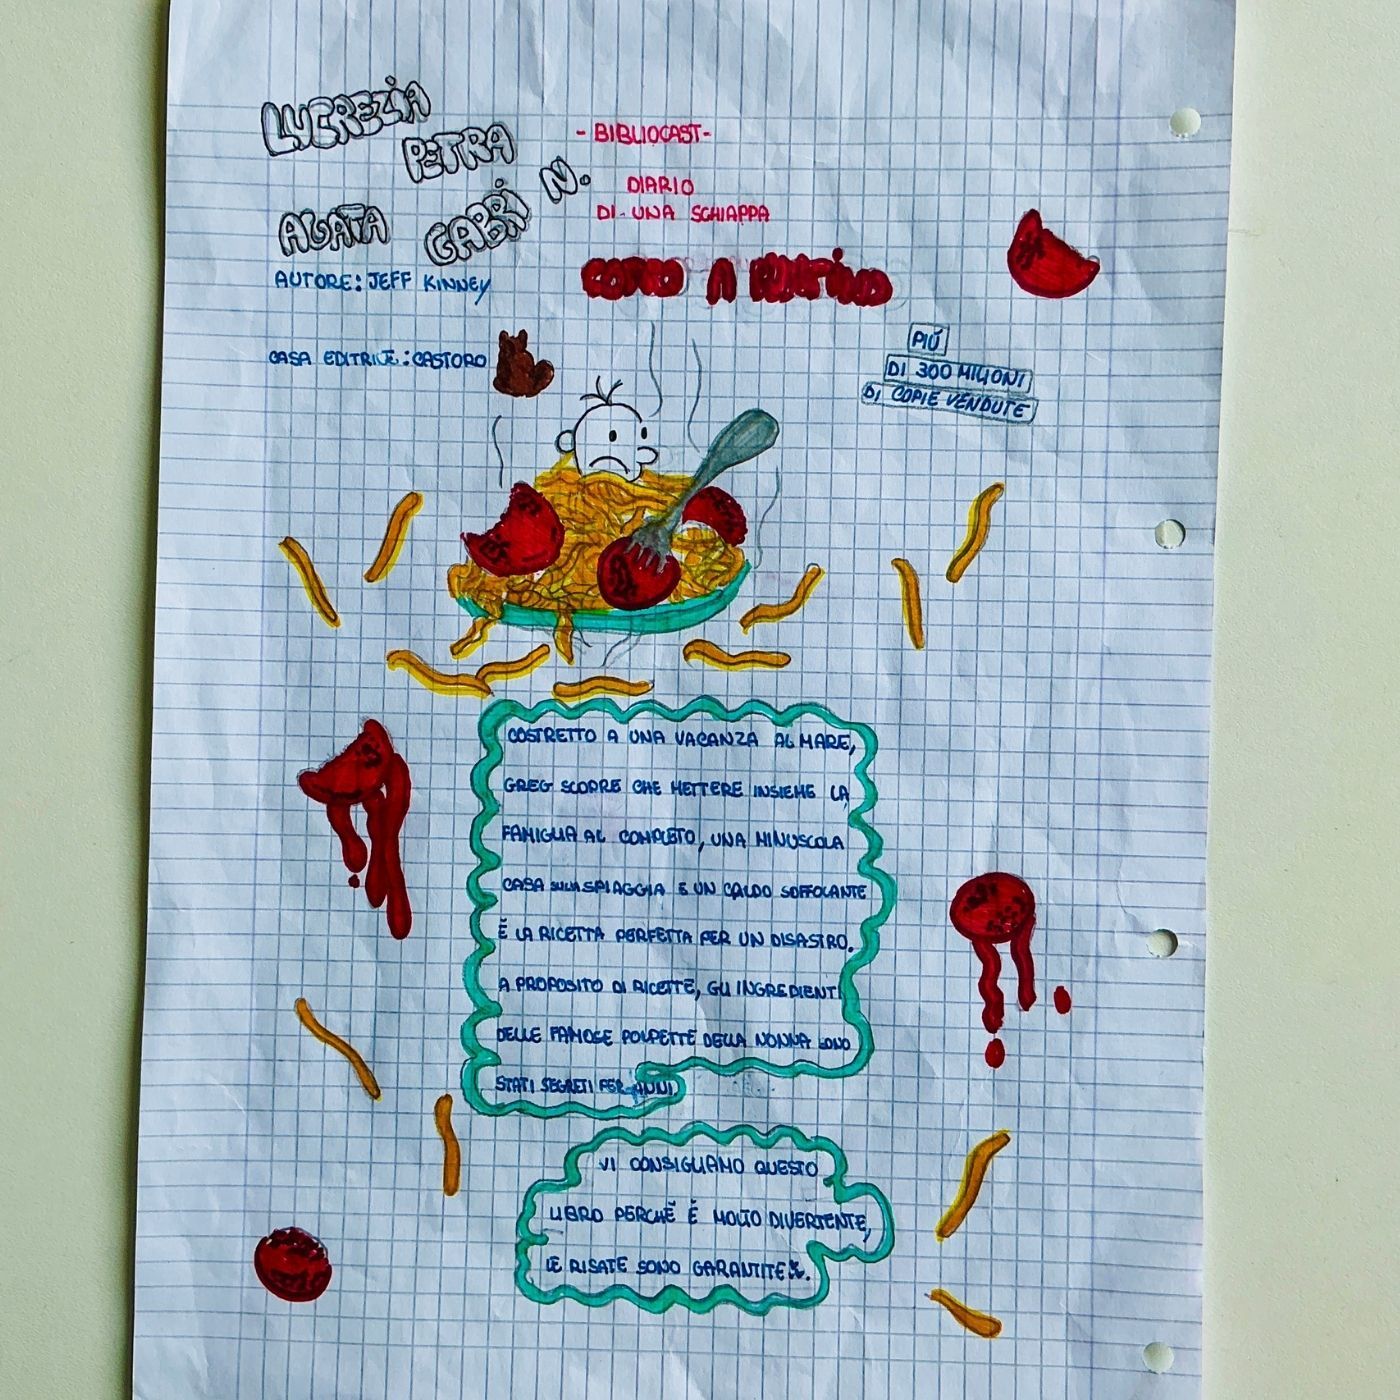 LUCREZIA
PETRA
AGATA GABRI N.
AUTORE: JEFF KINNEY
CASA EDITRICE: CASTORO
- BIBLIOCAST -
DIARIO
DI UNA SCHIAPPA
COTTO A PUNTINO
PIÚ
DI 300 MILIONI
DI COPIE VENDUTE
COSTRETTO A UNA VACANZA AL MARE,
GREG SCOPRE CHE METTERE INSIEME LA
FAMIGLIA AL COMPLETO, UNA MINUSCOLA
CASA SULLA SPIAGGIA E UN CALDO SOFFOCANTE
È LA RICETTA PERFETTA PER UN DISASTRO.
A PROPOSITO DI RICETTE, GLI INGREDIENTI
DELLE FAMOSE POLPETTE DELLA NONNA SONO
STATI SEGRETI PER ANNI.
VI CONSIGLIAMO QUESTO
LIBRO PERCHÈ È MOLTO DIVERTENTE,
LE RISATE SONO GARANTITE.